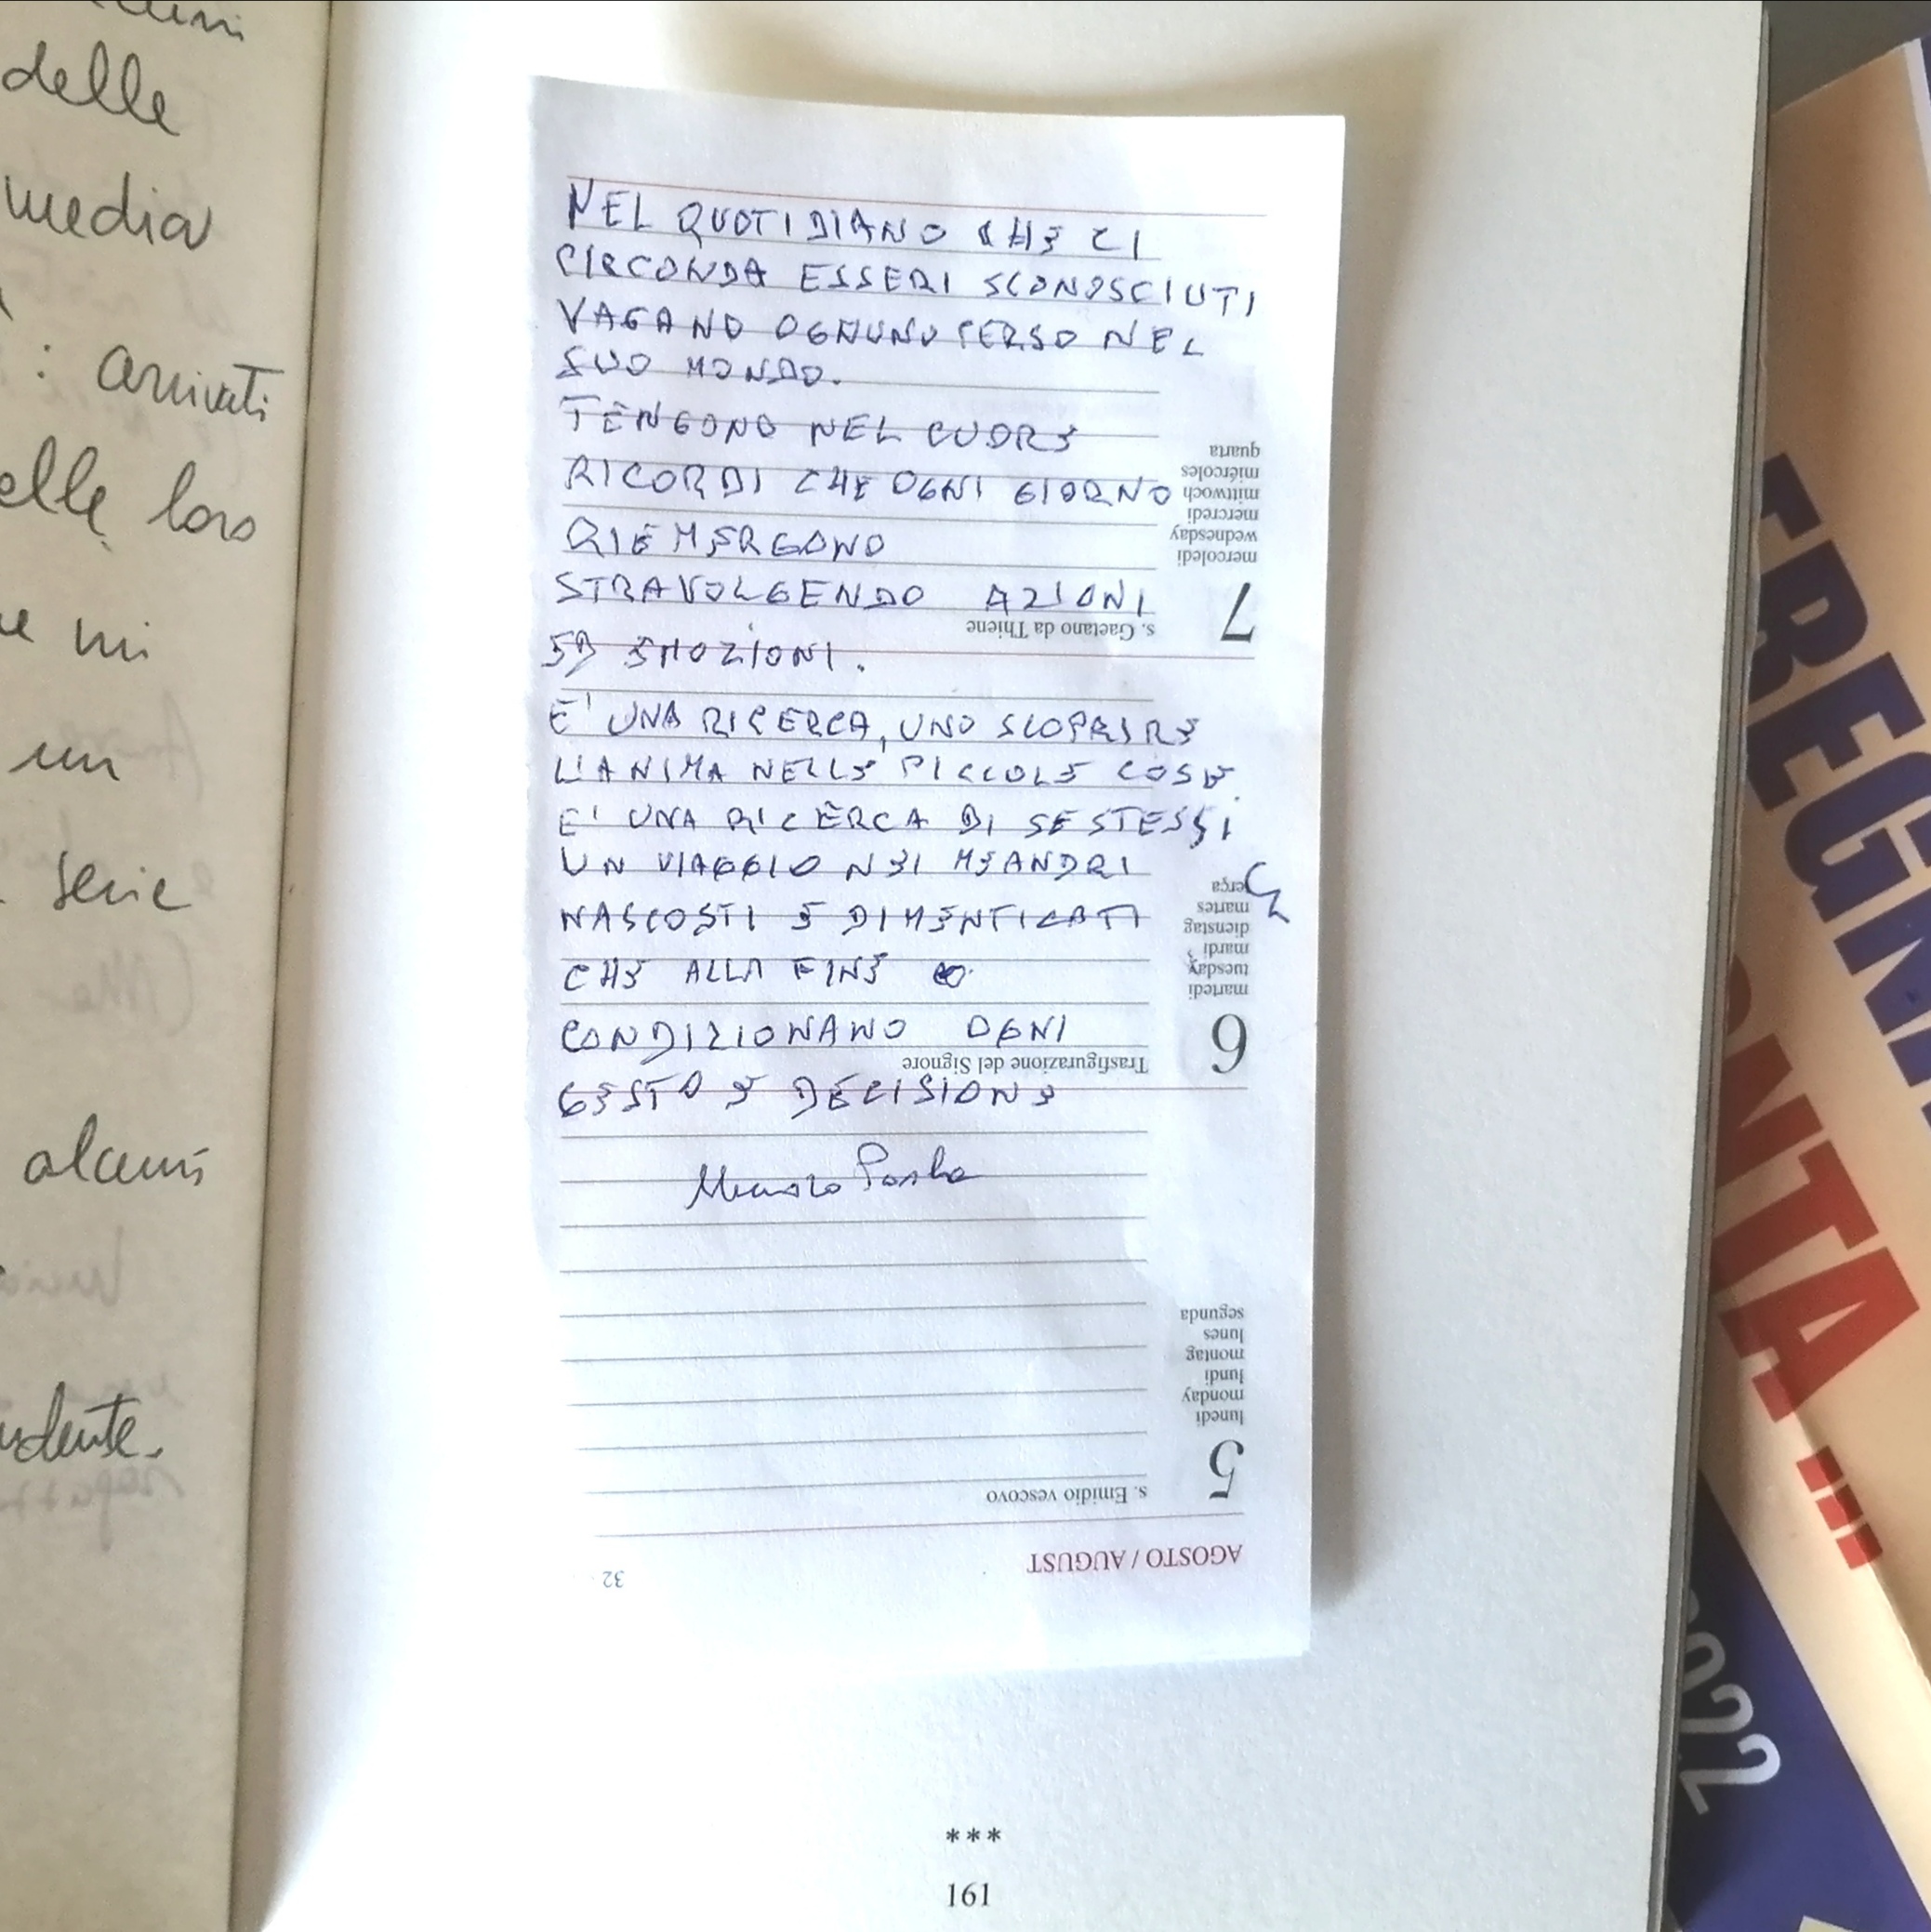 delle
media
: arrivati
elle loro
mi
un
serie
alcuni
NEL QUOTIDIANO CHE CI
CIRCONDA ESSERI SCONOSCIUTI
VAGANO OGNUNO PERSO NEL
SUO MONDO.
TENGONO NEL CUORE
RICORDI CHE OGNI GIORNO
RIEMERGONO
STRAVOLGENDO AZIONI
ED EMOZIONI.
E' UNA RICERCA, UNO SCOPRIRE
L'ANIMA NELLE PICCOLE COSE.
E' UNA RICERCA DI SE STESSI
UN VIAGGIO NEI MEANDRI
NASCOSTI E DIMENTICATI
CHE ALLA FINE
CONDIZIONANO OGNI
GESTO E DECISIONE
AGOSTO / AUGUST
32
5
s. Emidio vescovo
lunedì
monday
lundi
montag
lunes
segunda
6
Trasfigurazione del Signore
martedì
tuesday
mardi
dienstag
martes
terça
7
s. Gaetano da Thiene
mercoledì
wednesday
mercredi
mittwoch
miércoles
quarta
***
161